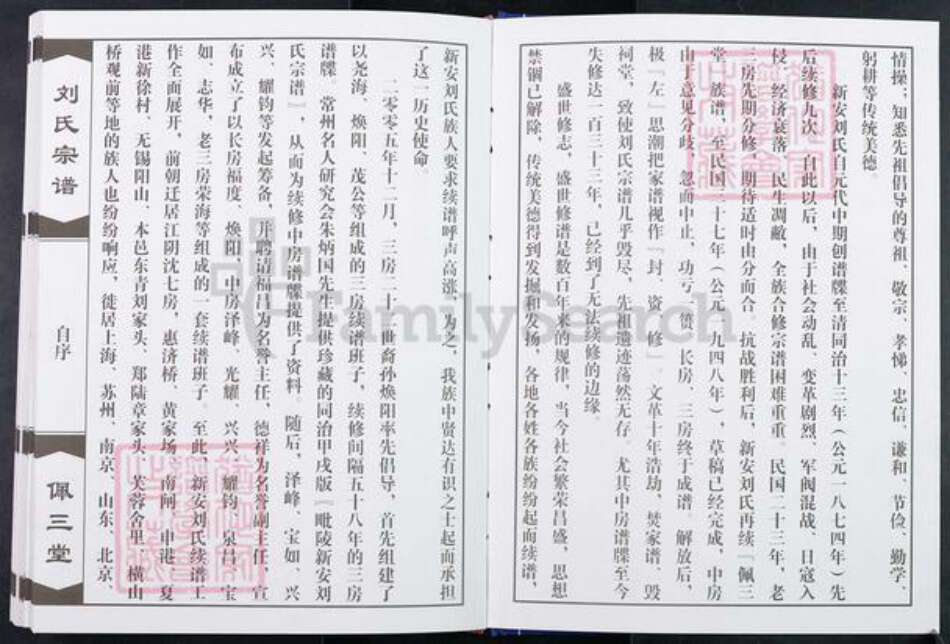 情操；知悉先祖倡导的尊祖、敬宗、孝悌、忠信、谦和、节俭、勤学、
躬耕等传统美德。
新安刘氏自元代中期创谱牒至清同治十三年（公元一八七四年）先
后续修九次，自此以后，由于社会动乱，变革剧烈、军阀混战、日寇入
侵，经济衰落，民生凋敝，全族合修宗谱困难重重。民国二十三年，老
三房先期分修，期待适时由分而合。抗战胜利后，新安刘氏再续『佩三
堂』族谱，至民国三十七年（公元一九四八年），草稿已经完成，中房
由于意见分歧，忽而中止，功亏一篑，长房、三房终于成谱。解放后，
极『左』思潮把家谱视作『封、资、修』。文革十年浩劫，焚家谱、毁
祠堂，致使刘氏宗谱几乎毁尽，先祖遗迹荡然无存。尤其中房谱牒至今
失修达一百三十三年，已经到了无法续修的边缘。
盛世修志，盛世修谱是数百年来的规律，当今社会繁荣昌盛，思想
禁锢已解除，传统美德得到发掘和发扬，各地各姓各族纷纷起而续谱，
刘氏宗谱
自序
佩三堂
新安刘氏族人要求续谱呼声高涨，为之，我族中贤达有识之士起而承担
了这一历史使命。
二零零五年十二月，三房二十一世裔孙焕阳率先倡导，首先组建了
以尧海、焕阳、茂公等组成的三房续谱班子，续修间隔五十八年的三房
谱牒。常州名人研究会朱炳国先生提供珍藏的同治甲戌版『毗陵新安刘
氏宗谱』，从而为续修中房谱牒提供了资料。随后，泽峰、宝如、兴
兴、耀钧等发起筹备，并聘请福昌为名誉主任，德祥为名誉副主任，宣
布成立了以长房福度、焕阳，中房泽峰、光耀、兴兴、耀钧、泉昌、宝
如、志华，老三房荣海等组成的一套续谱班子。至此，新安刘氏续谱工
作全面展开，前朝迁居江阴沈七房，惠济桥、黄家场、南闸、申港、夏
港新徐村、无锡阳山、本邑东青刘家头、郑陆章家头、芙蓉舍里、横山
桥观前等地的族人也纷纷响应，徙居上海、苏州、南京、山东、北京、
FamilySearch